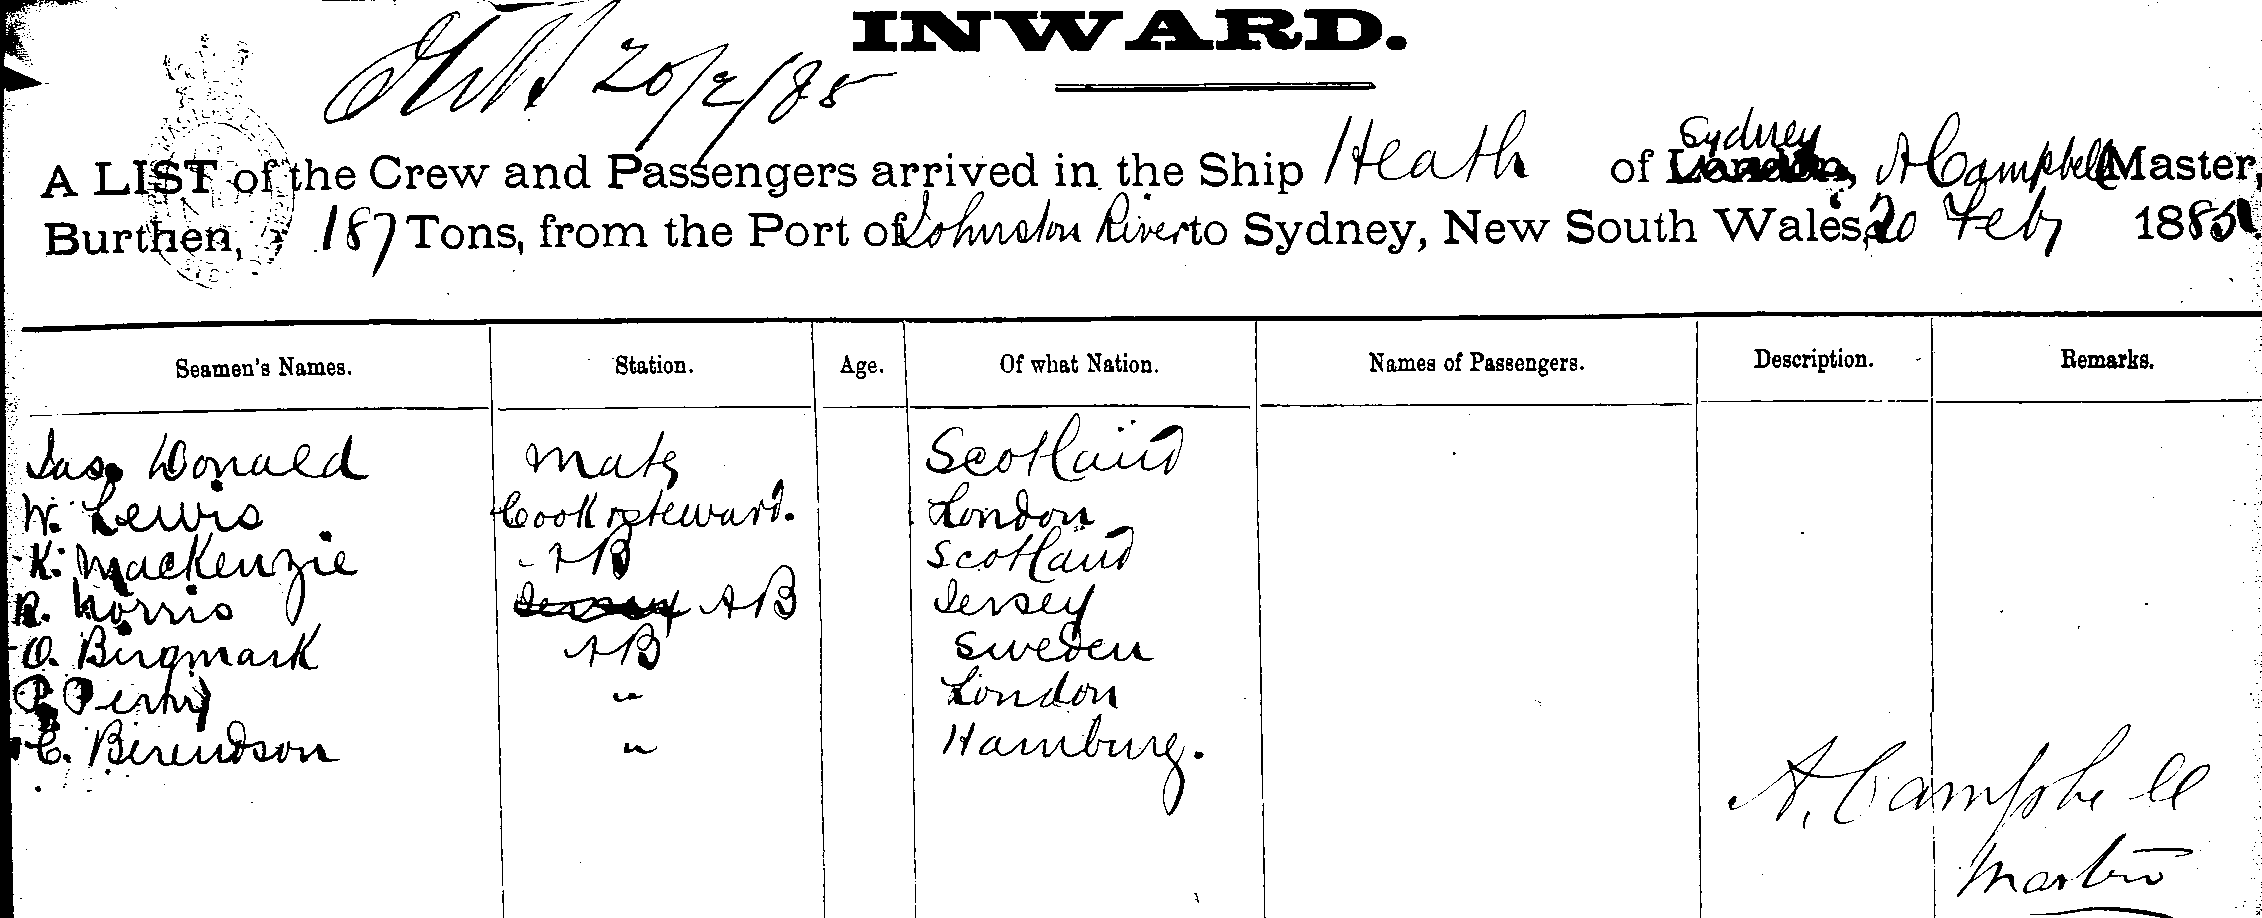 INWARD.
20/2/85
A LIST of the Crew and Passengers arrived in the Ship Heath of Sydney London, A Campbell Master,
Burthen, 187 Tons, from the Port of Johnston River to Sydney, New South Wales, 20 Feby 1885
Seamen's Names. Station. Age. Of what Nation. Names of Passengers. Description. Remarks.
Jas. Donald Mate Scotland
W. Lewis Cook & Steward. London
K. MacKenzie AB Scotland
R. Norris Jersey AB Jersey
O. Birgmark AB Sweden
P. Perry " London
C. Berendson " Hamburg.
A. Campbell
Master